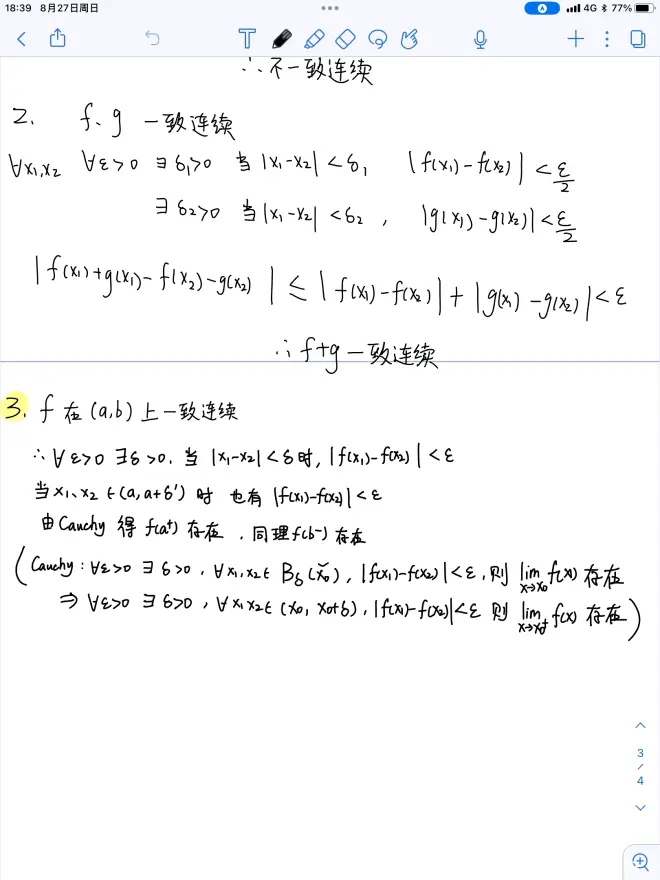 18:39 8月27日周日
4G 77%
T
∴不一致连续
2. f、g 一致连续
∀x₁,x₂ ∀ε>0 ∃δ₁>0 当|x₁-x₂|<δ₁ |f(x₁)-f(x₂)|<ε/2
∃δ₂>0 当|x₁-x₂|<δ₂, |g(x₁)-g(x₂)|<ε/2
|f(x₁)+g(x₁)-f(x₂)-g(x₂)|≤|f(x₁)-f(x₂)|+|g(x₁)-g(x₂)|<ε
∴f+g一致连续
3. f在(a,b)上一致连续
∴∀ε>0 ∃δ>0. 当|x₁-x₂|<δ时, |f(x₁)-f(x₂)|<ε
当x₁、x₂∈(a,a+δ')时 也有|f(x₁)-f(x₂)|<ε
由Cauchy得f(a⁺)存在,同理f(b⁻)存在
(Cauchy:∀ε>0 ∃δ>0, ∀x₁,x₂∈B_δ(x̌₀), |f(x₁)-f(x₂)|<ε,则 lim_{x→x₀} f(x)存在
⇒∀ε>0 ∃δ>0, ∀x₁x₂∈(x₀, x₀+δ), |f(x₁)-f(x₂)|<ε 则 lim_{x→x₀⁺} f(x)存在)
3
/
4